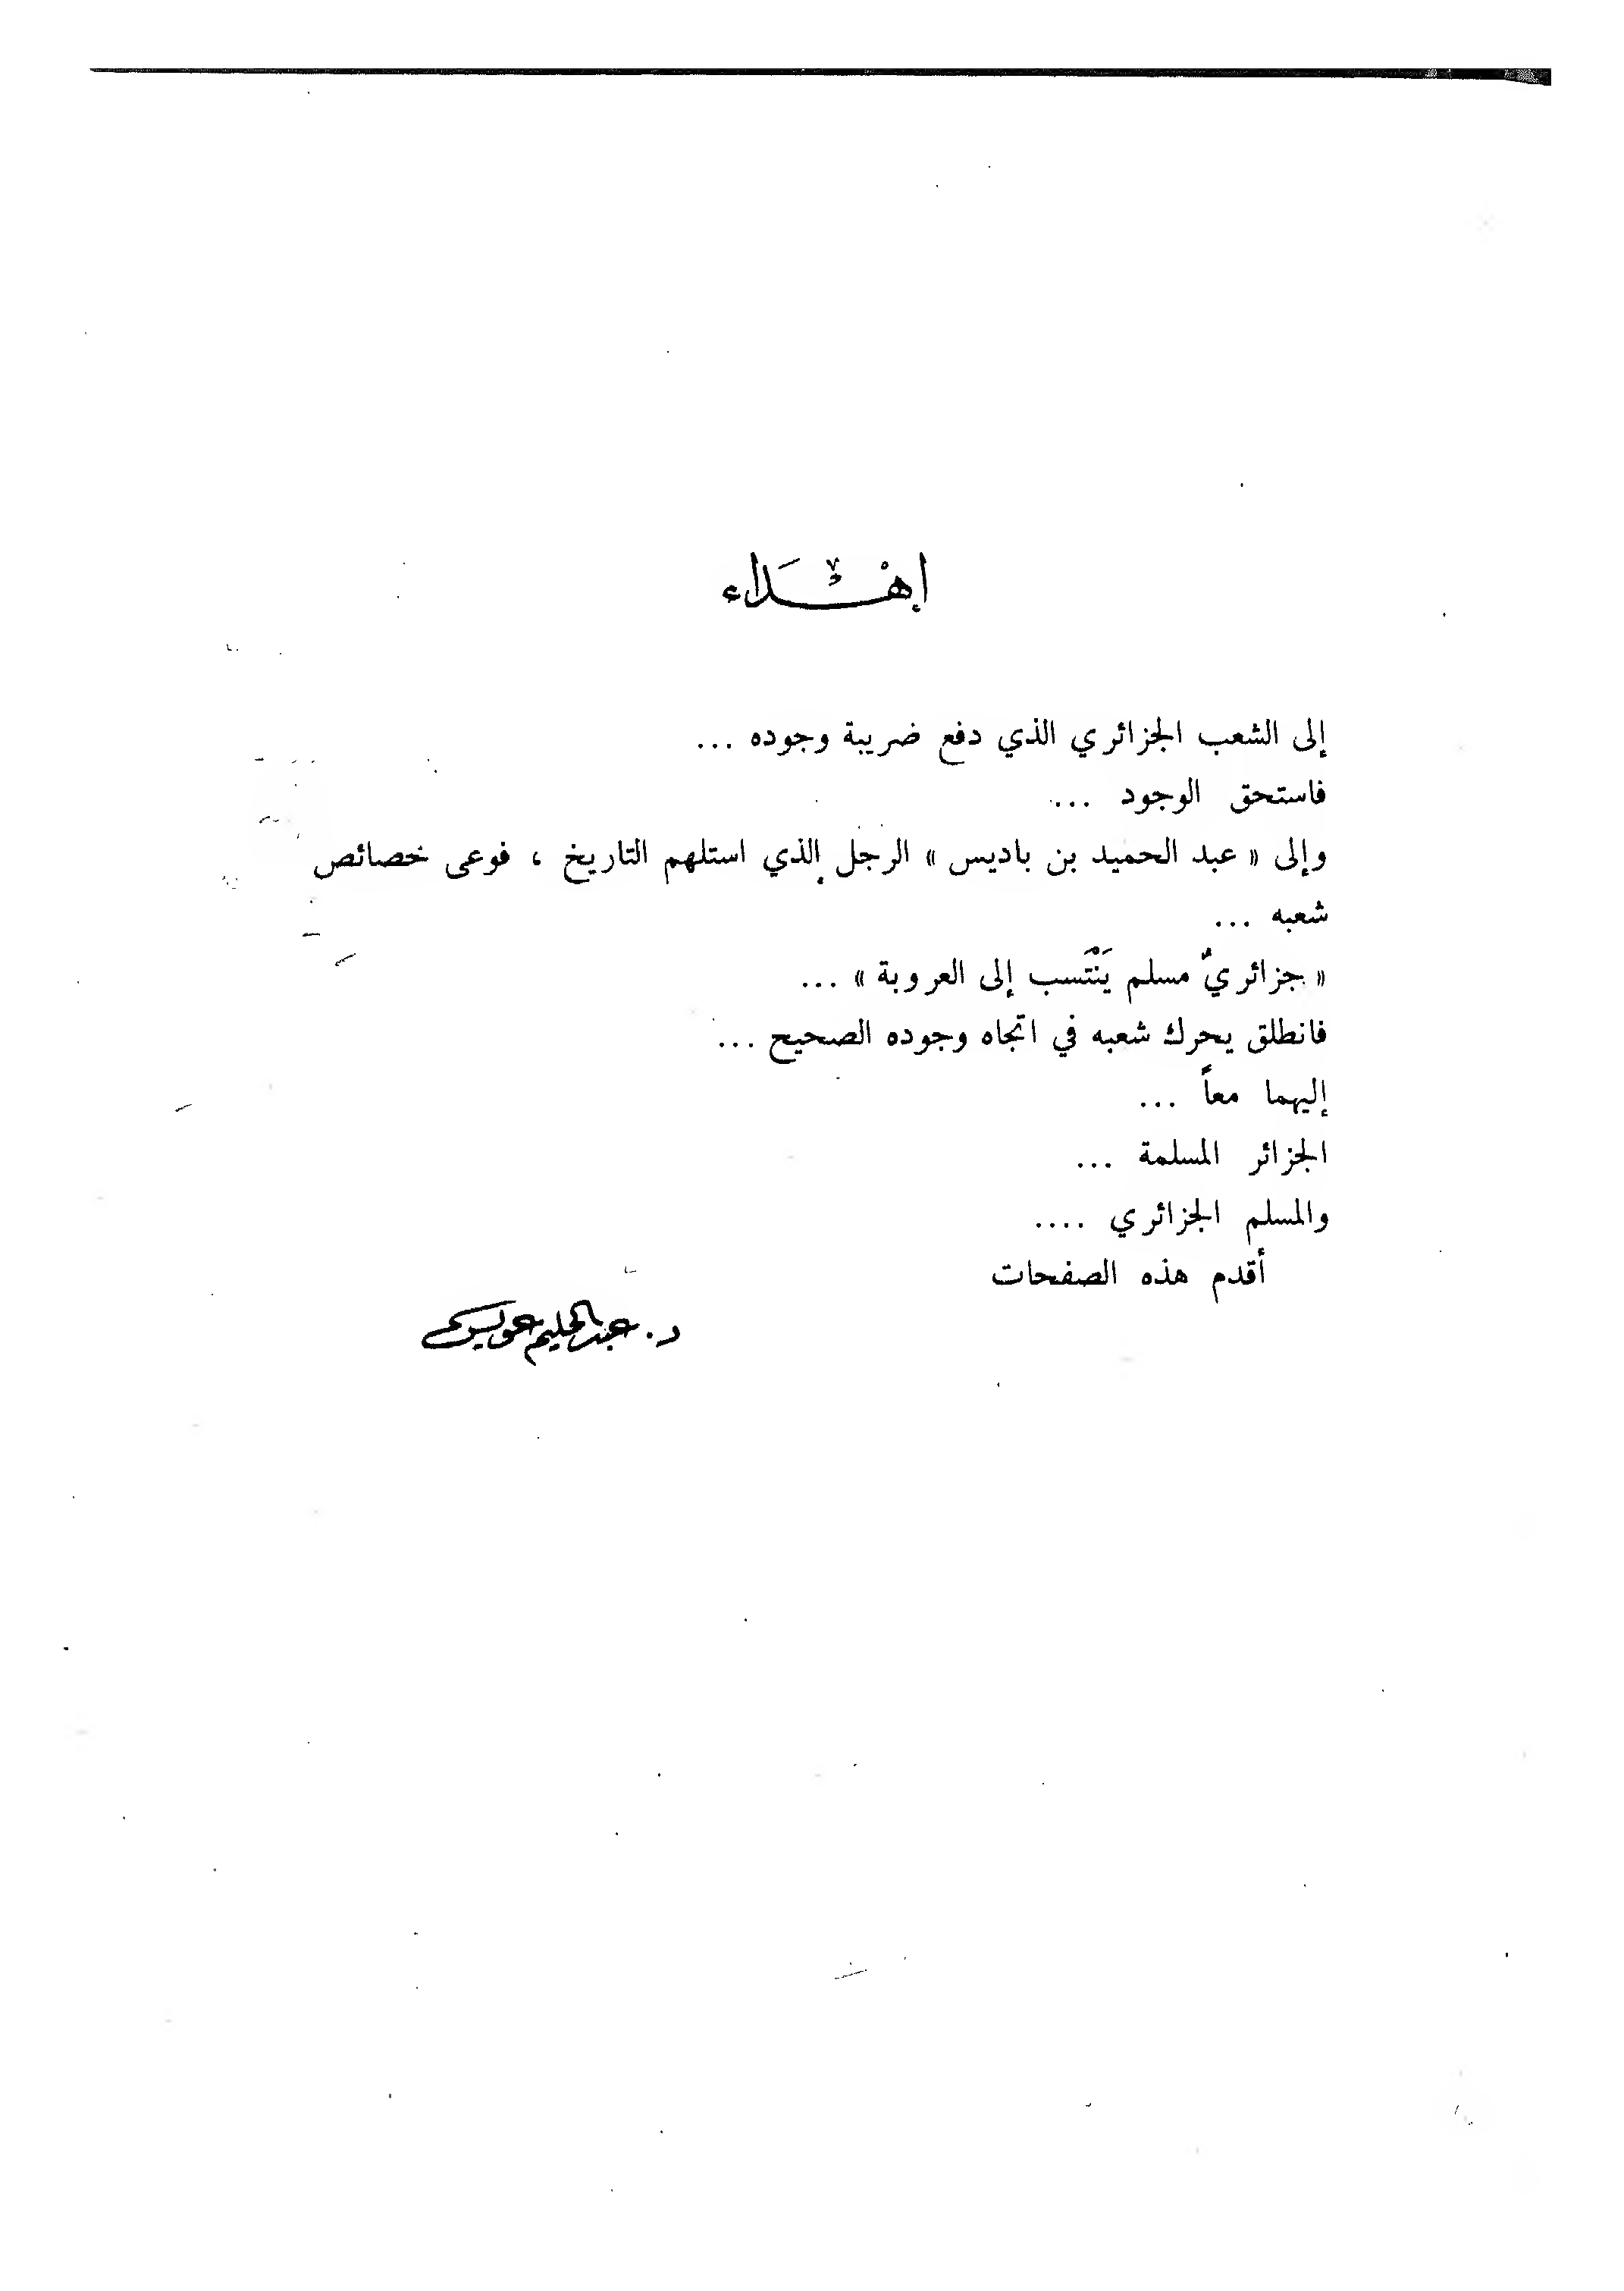 إهْـدَاء
إلى الشعب الجزائري الذي دفع ضريبة وجوده ...
فاستحق الوجود ...
وإلى « عبد الحميد بن باديس » الرجل الذي استلهم التاريخ ، فوعى خصائص
شعبه ...
« جزائريٌ مسلم يَنْتَسب إلى العروبة » ...
فانطلق يحرك شعبه في اتجاه وجوده الصحيح ...
إليهما معاً ...
الجزائر المسلمة ...
والمسلم الجزائري ....
أقدم هذه الصفحات
د. عبدالحليم عويس